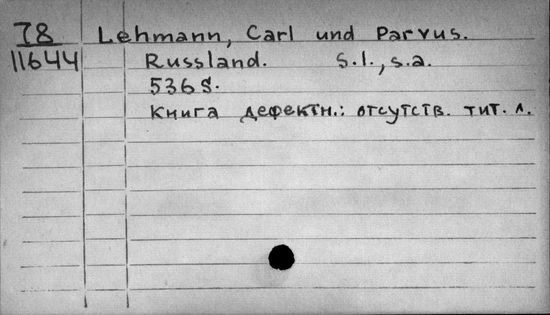 78 Lehmann, Carl und Parvus.
11644 Russland. s.l., s.a.
536 S.
Книга дефектн.: отсутств. тит. л.